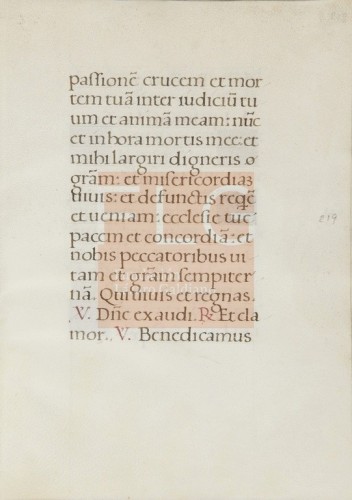 paſſionē crucem et mor
tem tuā inter iudiciū tu
um et animā meam: nūc
et in hora mortis mee: et
mihi largiri digneris
grām: et misericordiā:
uiuis: et defunctis reqē
et ueniam: ecclesie tue
pacem et concordiā: et
nobis peccatoribus ui
tam et grām sempiter
nā. Qui uiuis et regnas.
V. Dn̄e exaudi. R. Et cla
mor. V. Benedicamus
219